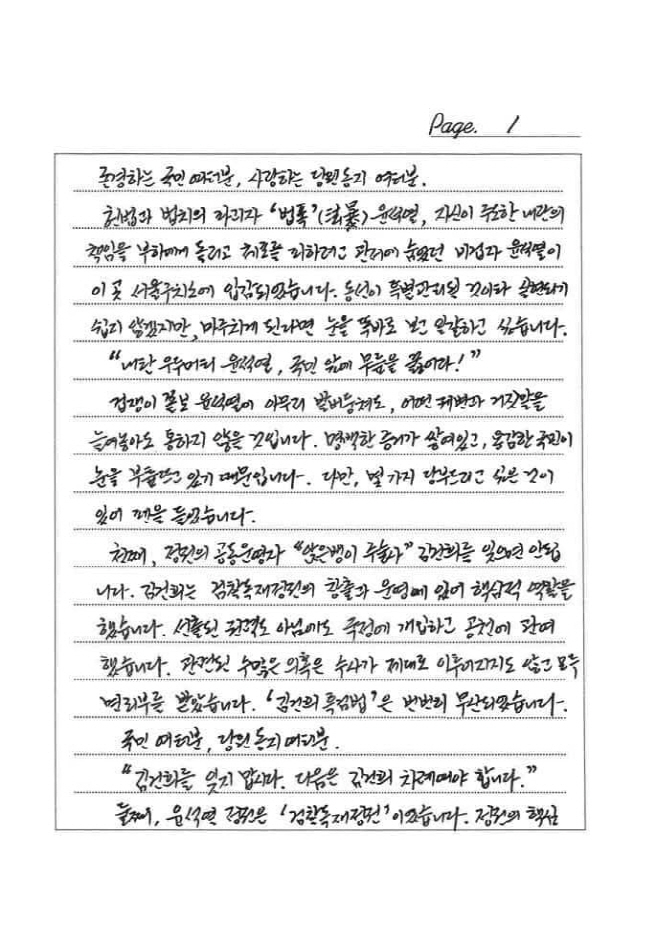 Page. 1
존경하는 국민 여러분, 사랑하는 당원동지 여러분.
헌법과 법치의 파괴자 '법폭'(法暴) 윤석열, 자신이 주도한 내란의
책임을 부하에게 돌리고 체포를 피하려고 관저에 숨었던 비겁자 윤석열이
이 곳 서울구치소에 입감되었습니다. 동선이 특별관리될 것이라 실현되기
쉽지 않겠지만, 마주치게 된다면 눈을 똑바로 보고 일갈하고 싶습니다.
"내란 우두머리 윤석열, 국민 앞에 무릎을 꿇어라!"
겁쟁이 꼴보 윤석열이 아무리 발버둥쳐도, 어떤 궤변과 거짓말을
늘어놓아도 통하지 않을 것입니다. 명백한 증거가 쌓여있고, 용감한 국민이
눈을 부릅뜨고 있기 때문입니다. 다만, 몇 가지 당부드리고 싶은 것이
있어 펜을 들었습니다.
첫째, 정권의 공동운영자 "앉은뱅이 주술사" 김건희를 잊으면 안됩
니다. 김건희는 검찰독재정권의 창출과 운영에 있어 핵심적 역할을
했습니다. 선출된 권력도 아님에도 국정에 개입하고 공천에 관여
했습니다. 관련된 수많은 의혹은 수사가 제대로 이루어지지도 않고 모두
면죄부를 받았습니다. '김건희 특검법'은 번번이 무산되었습니다.
국민 여러분, 당원동지 여러분.
"김건희를 잊지 맙시다. 다음은 김건희 차례여야 합니다."
둘째, 윤석열 정권은 '검찰독재정권'이었습니다. 정권의 핵심